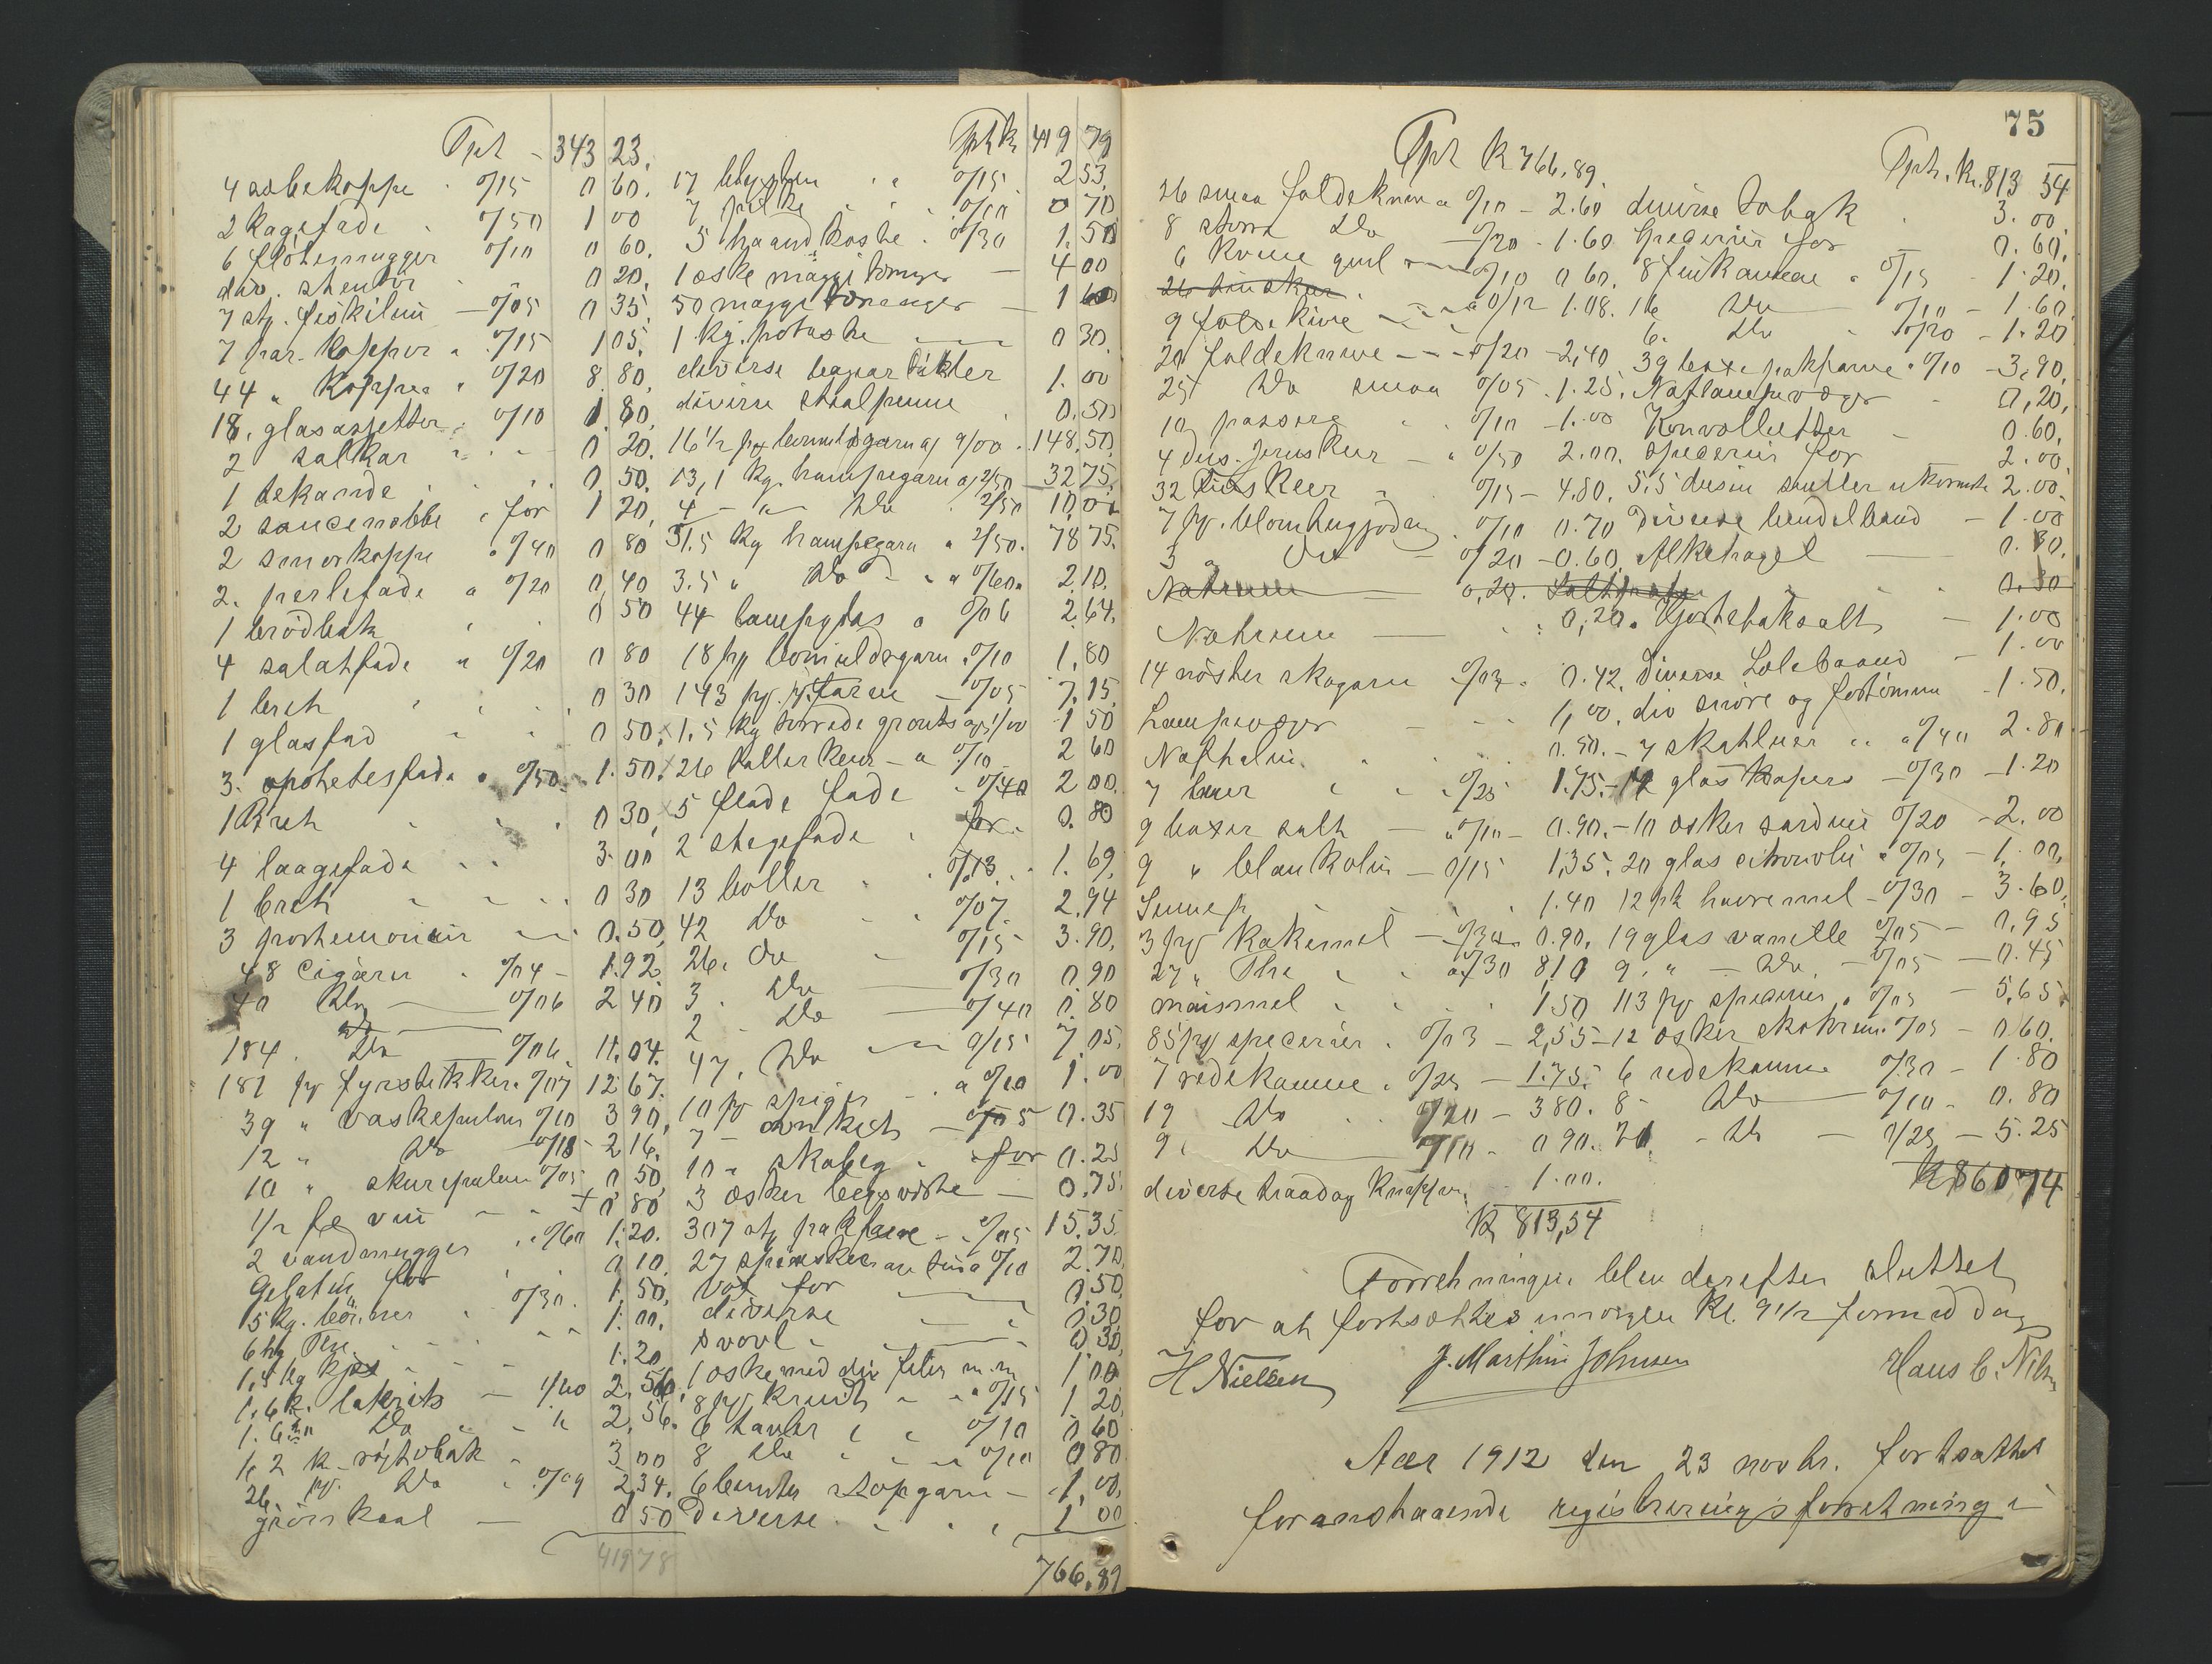 Tpt - 343 23.
4 sæbekoppe " 0/15 0 60.
2 kagefade " 0/50 1 00
6 flötemugger 0/10 0 60.
div. 0 20.
7 stk. fiskelim - 0/05 0 35.
7 par kopper " 0/15 1 05.
44 " Kopper " 0/20 8 80.
18. glasasjetter " 0/10 1 80.
2 saltkar " " 0 20.
1 tekande 0 50.
2 saucenebbe " for 1 20.
2 smørkoppe " 0/40 0 80
2. perlefade a 0/20 0,40
1 brödbak 0 50
4 salatfade " 0/20 0 80
1 bret 0 30
1 glasfad 0 50.
3. apothekesfade " 0/50 1.50.
1 Bret 0 30.
4 laagefade 3.00
1 bret 0 30
3 portemonnäir 0.50.
48 Cigarer " 0/04 - 1.92
40 Do 0/06 2 40
184. Do 0/06 11.04.
181 pg fyrstikker 0/07 12 67.
39 " vaskepulver 0/10 3 90.
12 " Do 0/18 2 16.
10 " skurepulver 0/05 0 50
1/2 fl vin 0 80
2 vandmugger " 0/60 1.20.
Gelatin for 0 10.
5 kg. bönner " 0/30. 1.50.
6 hg The 1.00.
1,4 kg 1.20
1.6 k. lakrits - 1/60 2.56.
1.6 Do 2.56.
1,2 k. röjtobak 3 00
26 pg. Do " 0/09 2.34.
grönkaal - 0 50
419 78
Tpt k 419 79
17 0/15 2 53.
7 0/10 0 70
5 haandkoste " 0/30 1.50
1 æske maggi - 4 00
50 maggi - 1 60
1 kg. potaske 0 30
diverse 1.00
diverse staalpenne 0.50
16 1/2 pg bomuldsgarn a 9/00 . 148.50.
13,1 kg. hampegarn a 2/50 - 32 75.
4 - " - Do " 2/50 10,00
31.5 kg hampegarn " 2/50. 78 75.
3.5 " Do - " " 0/60. 2.10.
44 lampeglas " 0/06 2.64.
18 pg bomuldsgarn " 0/10 1.80
143 pg. farve - 0/05 7.15.
1.5 kg törrede grönts a 1/00 1 50
26 tallerkener - a 0/10 2 60
5 flade fade " 0/40 2 00.
2 stegefade " for 0.80
13 boller " 0/13. 1.69.
42 Do " 0/07. 2.94
26. Do 0/15 3.90.
3. Do 0/30 0.90
2 - Do 0/40 0.80
47. Do 0/15 7.05.
10 pg spiger - a 0/10 1.00
7 - - 0/05 0.35
10 " " for 0.25
3 æsker - 0.75.
307 stk pakfarve - " 0/05 15.35
27 0/10 2.70
Vox for 0.50.
diverse 0.30.
svovl 0.30.
1 æske med div. 1.00
8 pg. krudt 0/15 1.20
6 tavler 0/10 0 60
8 Do 0/10 0 80
6 bundter stopgarn - 1.00.
Diverse 1 00
766.89
75
Tpt k 766,89.
26 smaa foldeknive a 0/10 - 2.60
8 större Do 0/20 - 1.60
6 0/10 0 60.
9 foldeknive a 0/12 1.08.
foldeknive - 0/20 - 2,40
25 Do smaa 0/05 . 1.25.
10 passere 0/10 - 1.00
4 dus. - " 0/50 2.00.
32 0/15 - 4.80.
7 pg. 0/10 0.70
3 " Do 0/20 - 0.60.
Natrium 0,20.
Natrium 0,20.
14 nöster skogarn 0/03. 0.42.
Lampevæger 1,00.
Naftalin 0.50.
7 " 0/25 1.75.
9 boxer salt - " 0/10 - 0.90.
9 " - 0/15 1,35.
Sennep 1.40
3 pg Kakemel - 0/30 0.90.
27 " The a 0/30 8,10
maismel 1 50
85 pg specerier " 0/03 - 2,55
7 redekamme " 0/25 - 1.75.
19 Do 0/20 - 3 80.
9 " Do 0/10 - 0 90.
diverse traad og Knapper 1.00.
k 813,54
Tpt. Kr. 813 54
diverse Tobak 3.00.
Specerier for - 0.60.
8 finkamme " 0/15 - 1.20.
16 Do 0/10 - 1.60.
6. Do " 0/20 - 1.20
39 pakfarve " 0/10 - 3,90.
Natlampevæger 0,20.
Konvolutter - 0.60.
specerier for 2.00
5,5 dusin 2.00.
Diverse bendelbaand - 1.00
0.80.
0,30
Hjortetaksalt - 1.00
Diverse - 1.00
div snöre og fortömme - 1.50.
7 " 0/40 2.80
4 glas kapers - 0/30 - 1.20
10 æsker sardin 0/20 - 2.00
20 glas citronolie " 0/05 - 1.00.
12 pk havremel - 0/30 - 3.60.
19 glas vanille 0/05 - 0.95
9. " - Do. - 0/05 - 0.45
113 pg specerier " 0/05 - 5,65.
12 æsker skokrem 0/05 - 0 60.
6 redekamme 0/30 - 1.80
8 - Do 0/10 - 0.80
21 - Do - 0/25 - 5.25
k 860 74
Forretningen blev derefter sluttet
for at fortsættes imorgen Kl. 9 1/2 formiddag
H Nielsen J. Marthin Johnsen Hans C. Nilsen
Aar 1912 den 23 novbr. fortsattes
foranstaaende registreringsforretning i